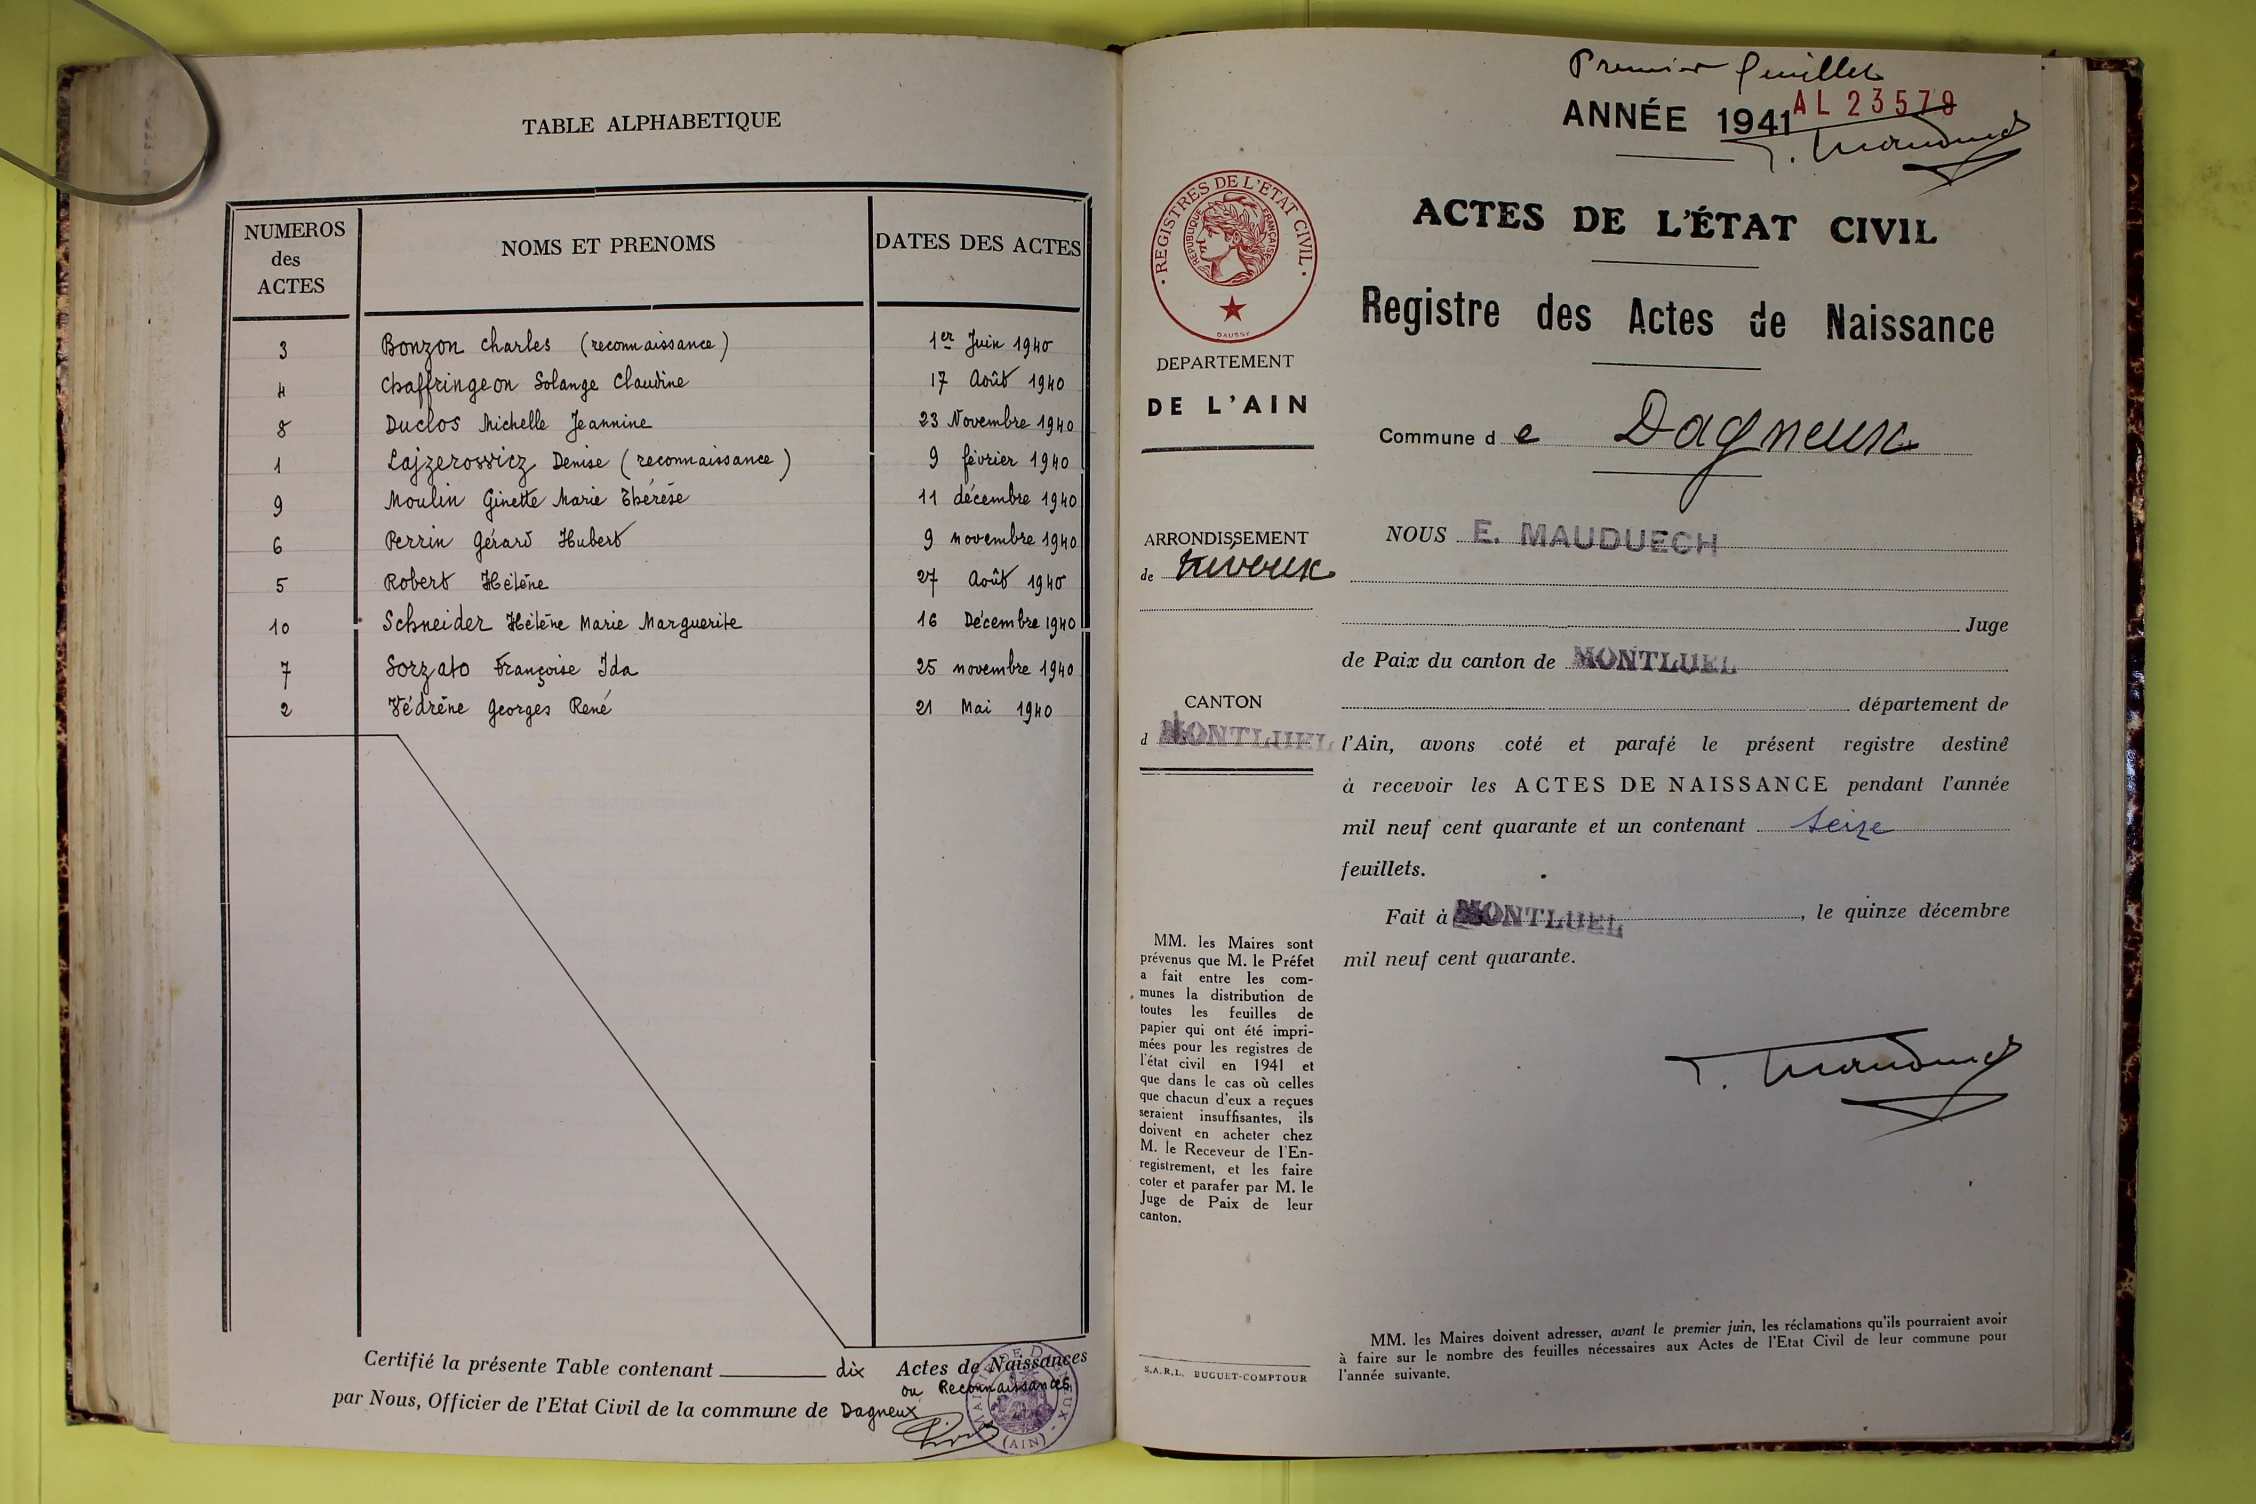 TABLE ALPHABETIQUE
NUMEROS
des
ACTES
NOMS ET PRENOMS
DATES DES ACTES
3 Bonzon Charles (reconnaissance) 1er Juin 1940
4 Chaffringeon Solange Claudine 17 Août 1940
8 Duclos Michelle Jeannine 23 Novembre 1940
1 Lajzerowicz Denise (reconnaissance) 9 février 1940
9 Moulin Ginette Marie Thérèse 11 décembre 1940
6 Perrin Gérard Hubert 9 novembre 1940
5 Robert Hélène 27 Août 1940
10 Schneider Hélène Marie Marguerite 16 Décembre 1940
7 Sorzato Françoise Ida 25 novembre 1940
2 Védrène Georges René 21 Mai 1940
Certifié la présente Table contenant dix Actes de Naissances
ou Reconnaissances
par Nous, Officier de l'Etat Civil de la commune de Dagneux
MAIRIE DE DAGNEUX
(AIN)
Premier feuillet
ANNÉE 1941
AL 23579
REGISTRES DE L'ETAT CIVIL
REPUBLIQUE FRANÇAISE
DAUSSY
ACTES DE L'ÉTAT CIVIL
Registre des Actes de Naissance
DEPARTEMENT
DE L'AIN
Commune de Dagneux
ARRONDISSEMENT
de Trévoux
CANTON
d MONTLUEL
NOUS E. MAUDUECH
Juge
de Paix du canton de MONTLUEL
département de
l'Ain, avons coté et parafé le présent registre destiné
à recevoir les ACTES DE NAISSANCE pendant l'année
mil neuf cent quarante et un contenant seize
feuillets.
Fait à MONTLUEL, le quinze décembre
mil neuf cent quarante.
MM. les Maires sont
prévenus que M. le Préfet
a fait entre les com-
munes la distribution de
toutes les feuilles de
papier qui ont été impri-
mées pour les registres de
l'état civil en 1941 et
que dans le cas où celles
que chacun d'eux a reçues
seraient insuffisantes, ils
doivent en acheter chez
M. le Receveur de l'En-
registrement, et les faire
coter et parafer par M. le
Juge de Paix de leur
canton.
S.A.R.L. BUGUET-COMPTOUR
MM. les Maires doivent adresser, avant le premier juin, les réclamations qu'ils pourraient avoir
à faire sur le nombre des feuilles nécessaires aux Actes de l'Etat Civil de leur commune pour
l'année suivante.